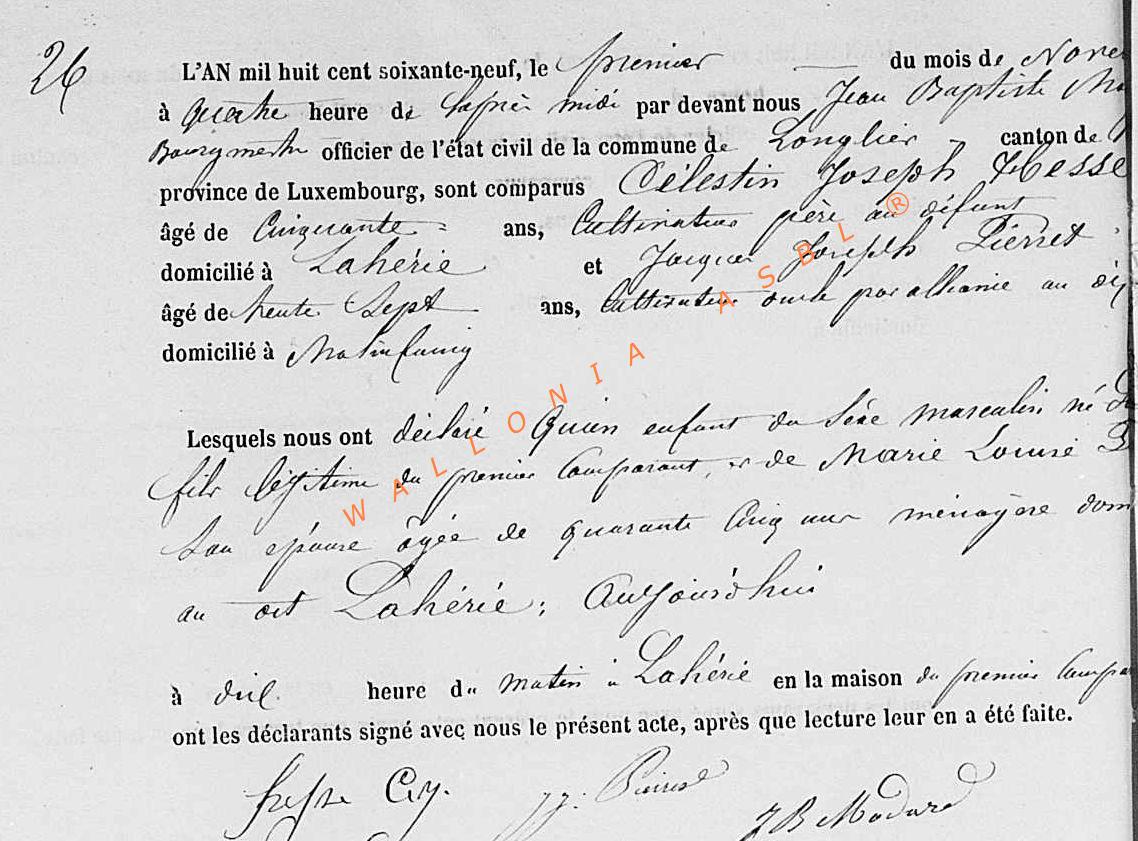 26
L'AN mil huit cent soixante-neuf, le premier du mois de Nove
à quatre heure de laprès midi par devant nous Jean Baptiste Ma
Bourgmestre officier de l'état civil de la commune de Longlier canton de
province de Luxembourg, sont comparus Célestin Joseph Hesse
âgé de Cinquante ans, Cultivateur père au défunt
domicilié à Lahérie et Jacques Joseph Pierret
âgé de trente Sept ans, Cultivateur oncle par alliance au
domicilié à Molinfaing
Lesquels nous ont déclaré Qu'un enfant du Sèxe masculin né
fils légitime du premier Comparant, et de Marie Louise
Son épouse âgée de quarante Cinq ans ménagère dom
au dit Lahérie; Aujourd'hui
à dix heure du matin à Lahérie en la maison du premier Compa
ont les déclarants signé avec nous le présent acte, après que lecture leur en a été faite.
J. J. Pierret
J B Modard
WALLONIA ASBL ®